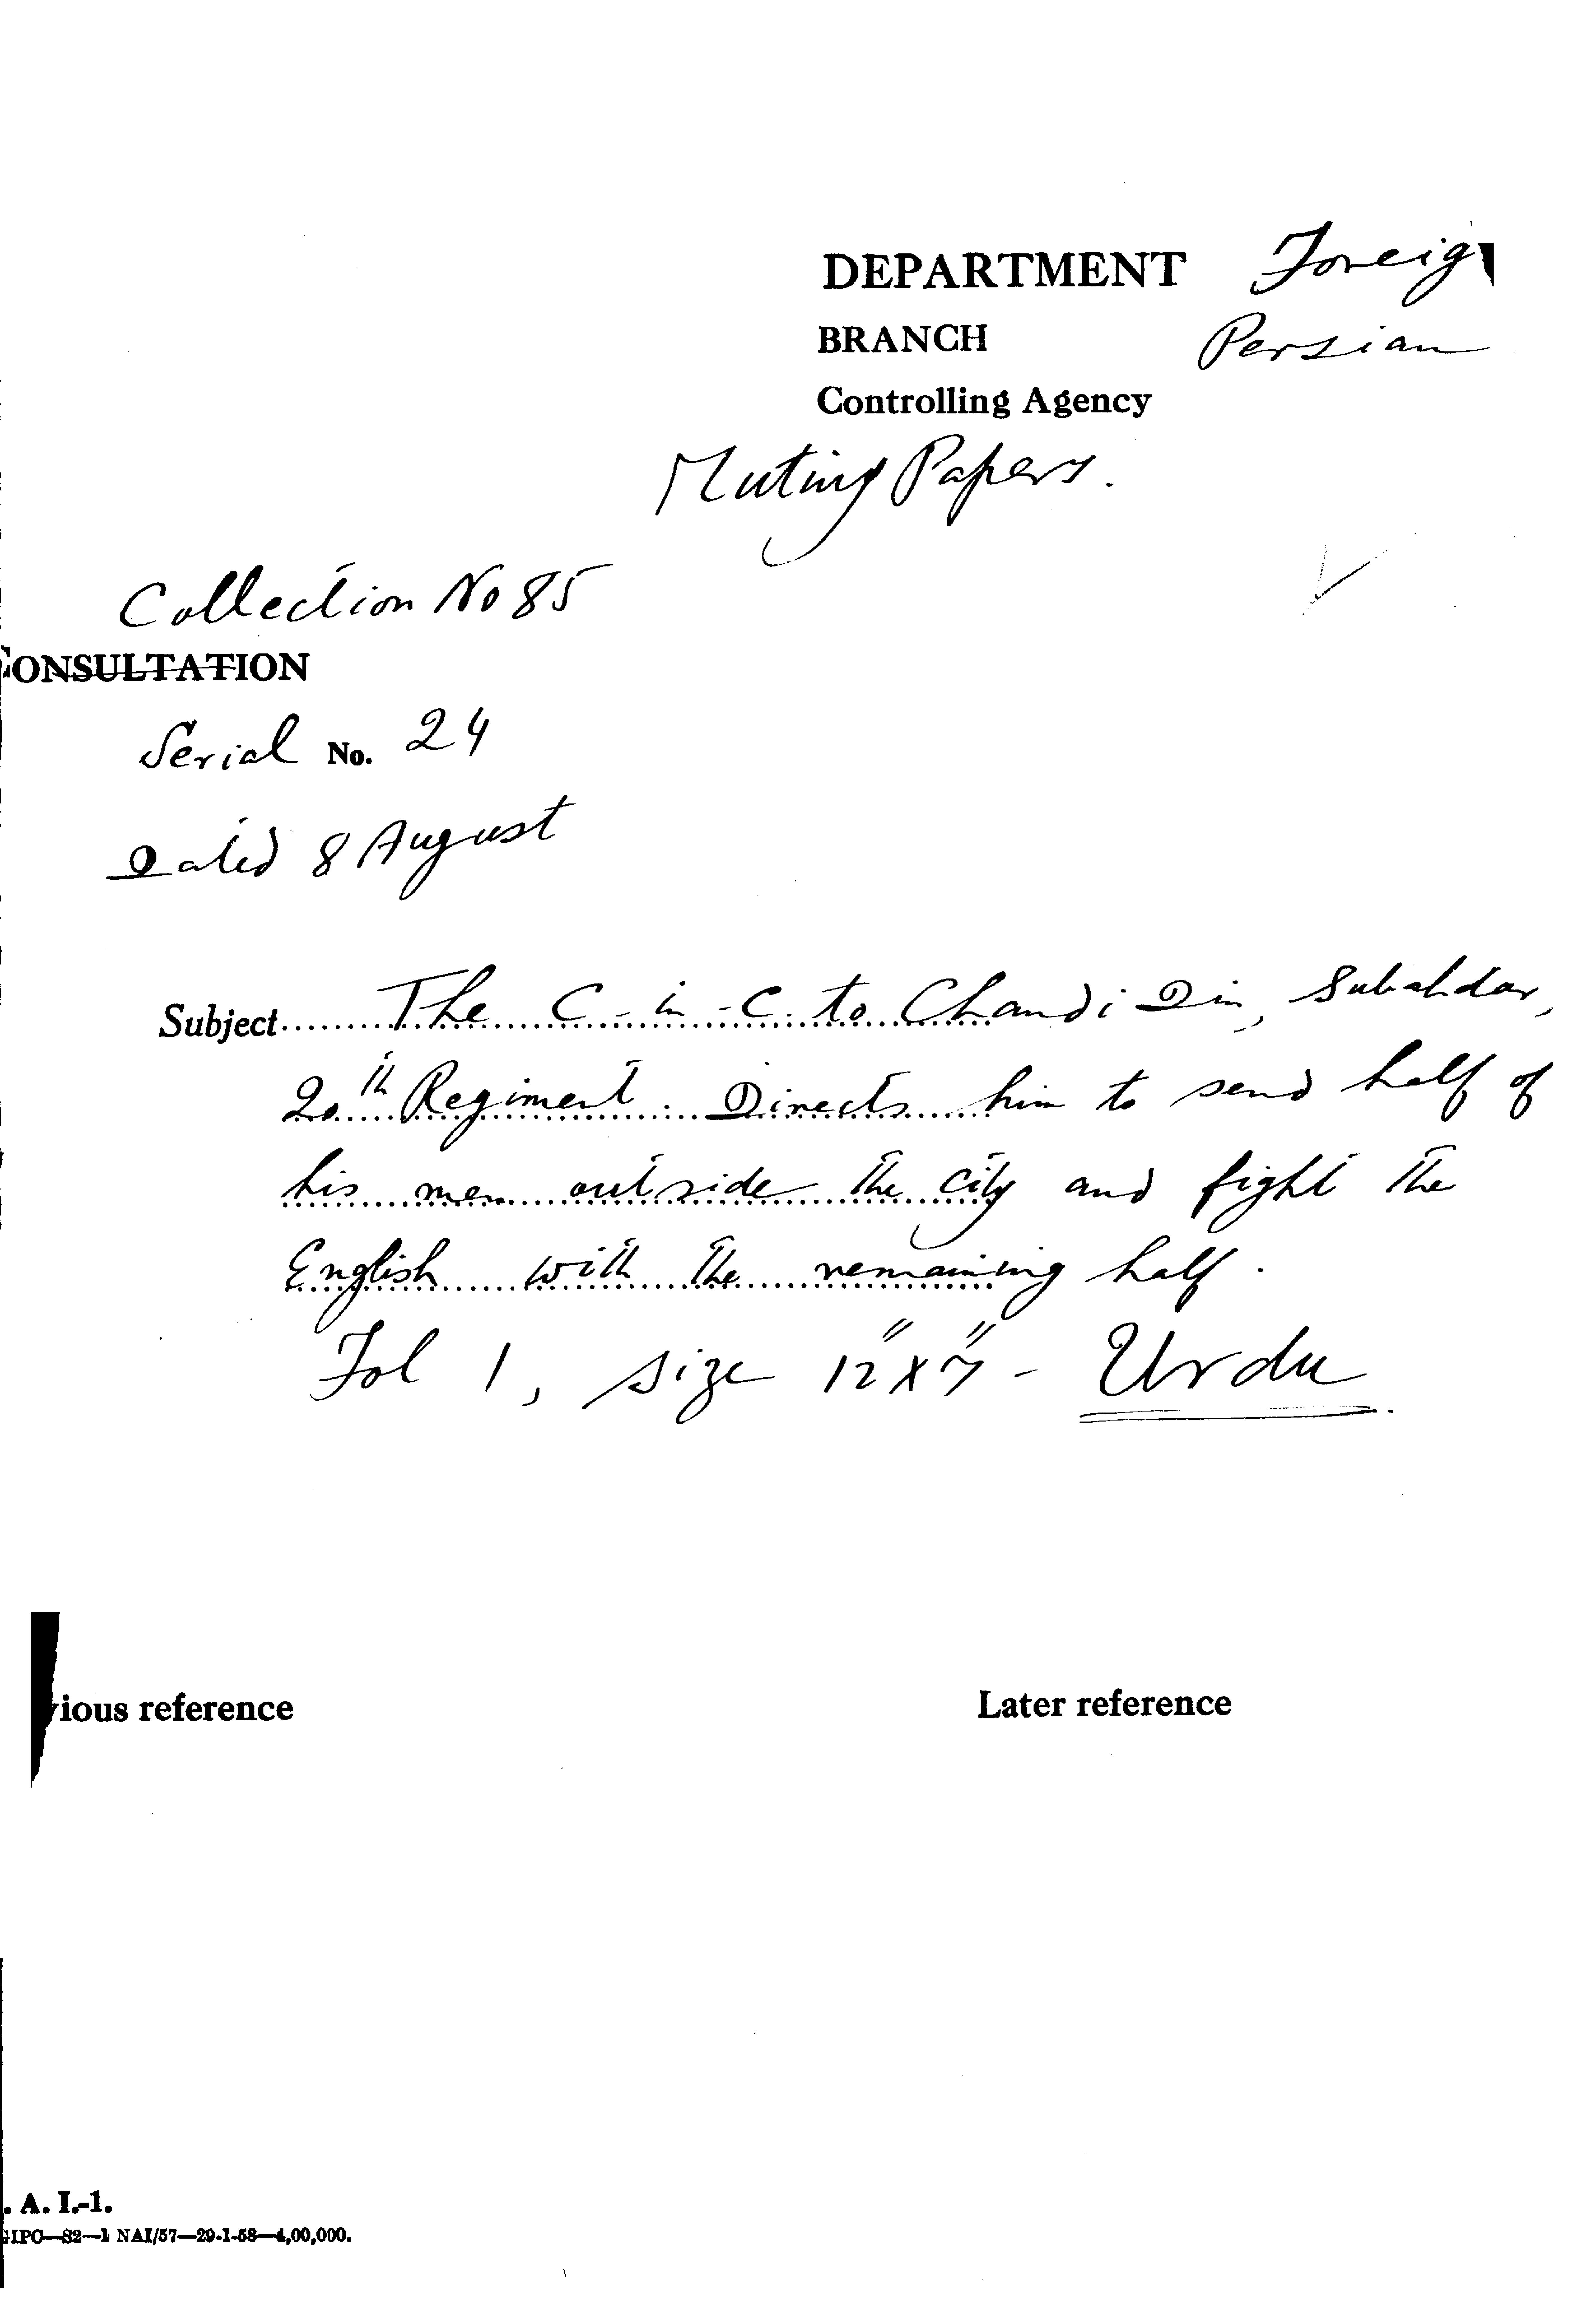 DEPARTMENT Foreig
BRANCH Persian
Controlling Agency
Mutiny Papers.
Collection No 85
CONSULTATION
Serial No. 24
Dated 8 August
Subject The C-in-C to Chandi Din, Subahdar,
20th Regiment. Directs him to send half of
his men outside the city and fight the
English with the remaining half.
Fol 1, size 12"x7" - Urdu.
vious reference Later reference
. A. I.-1.
GIPC—S2—1 NAI/57—29-1-58—4,00,000.